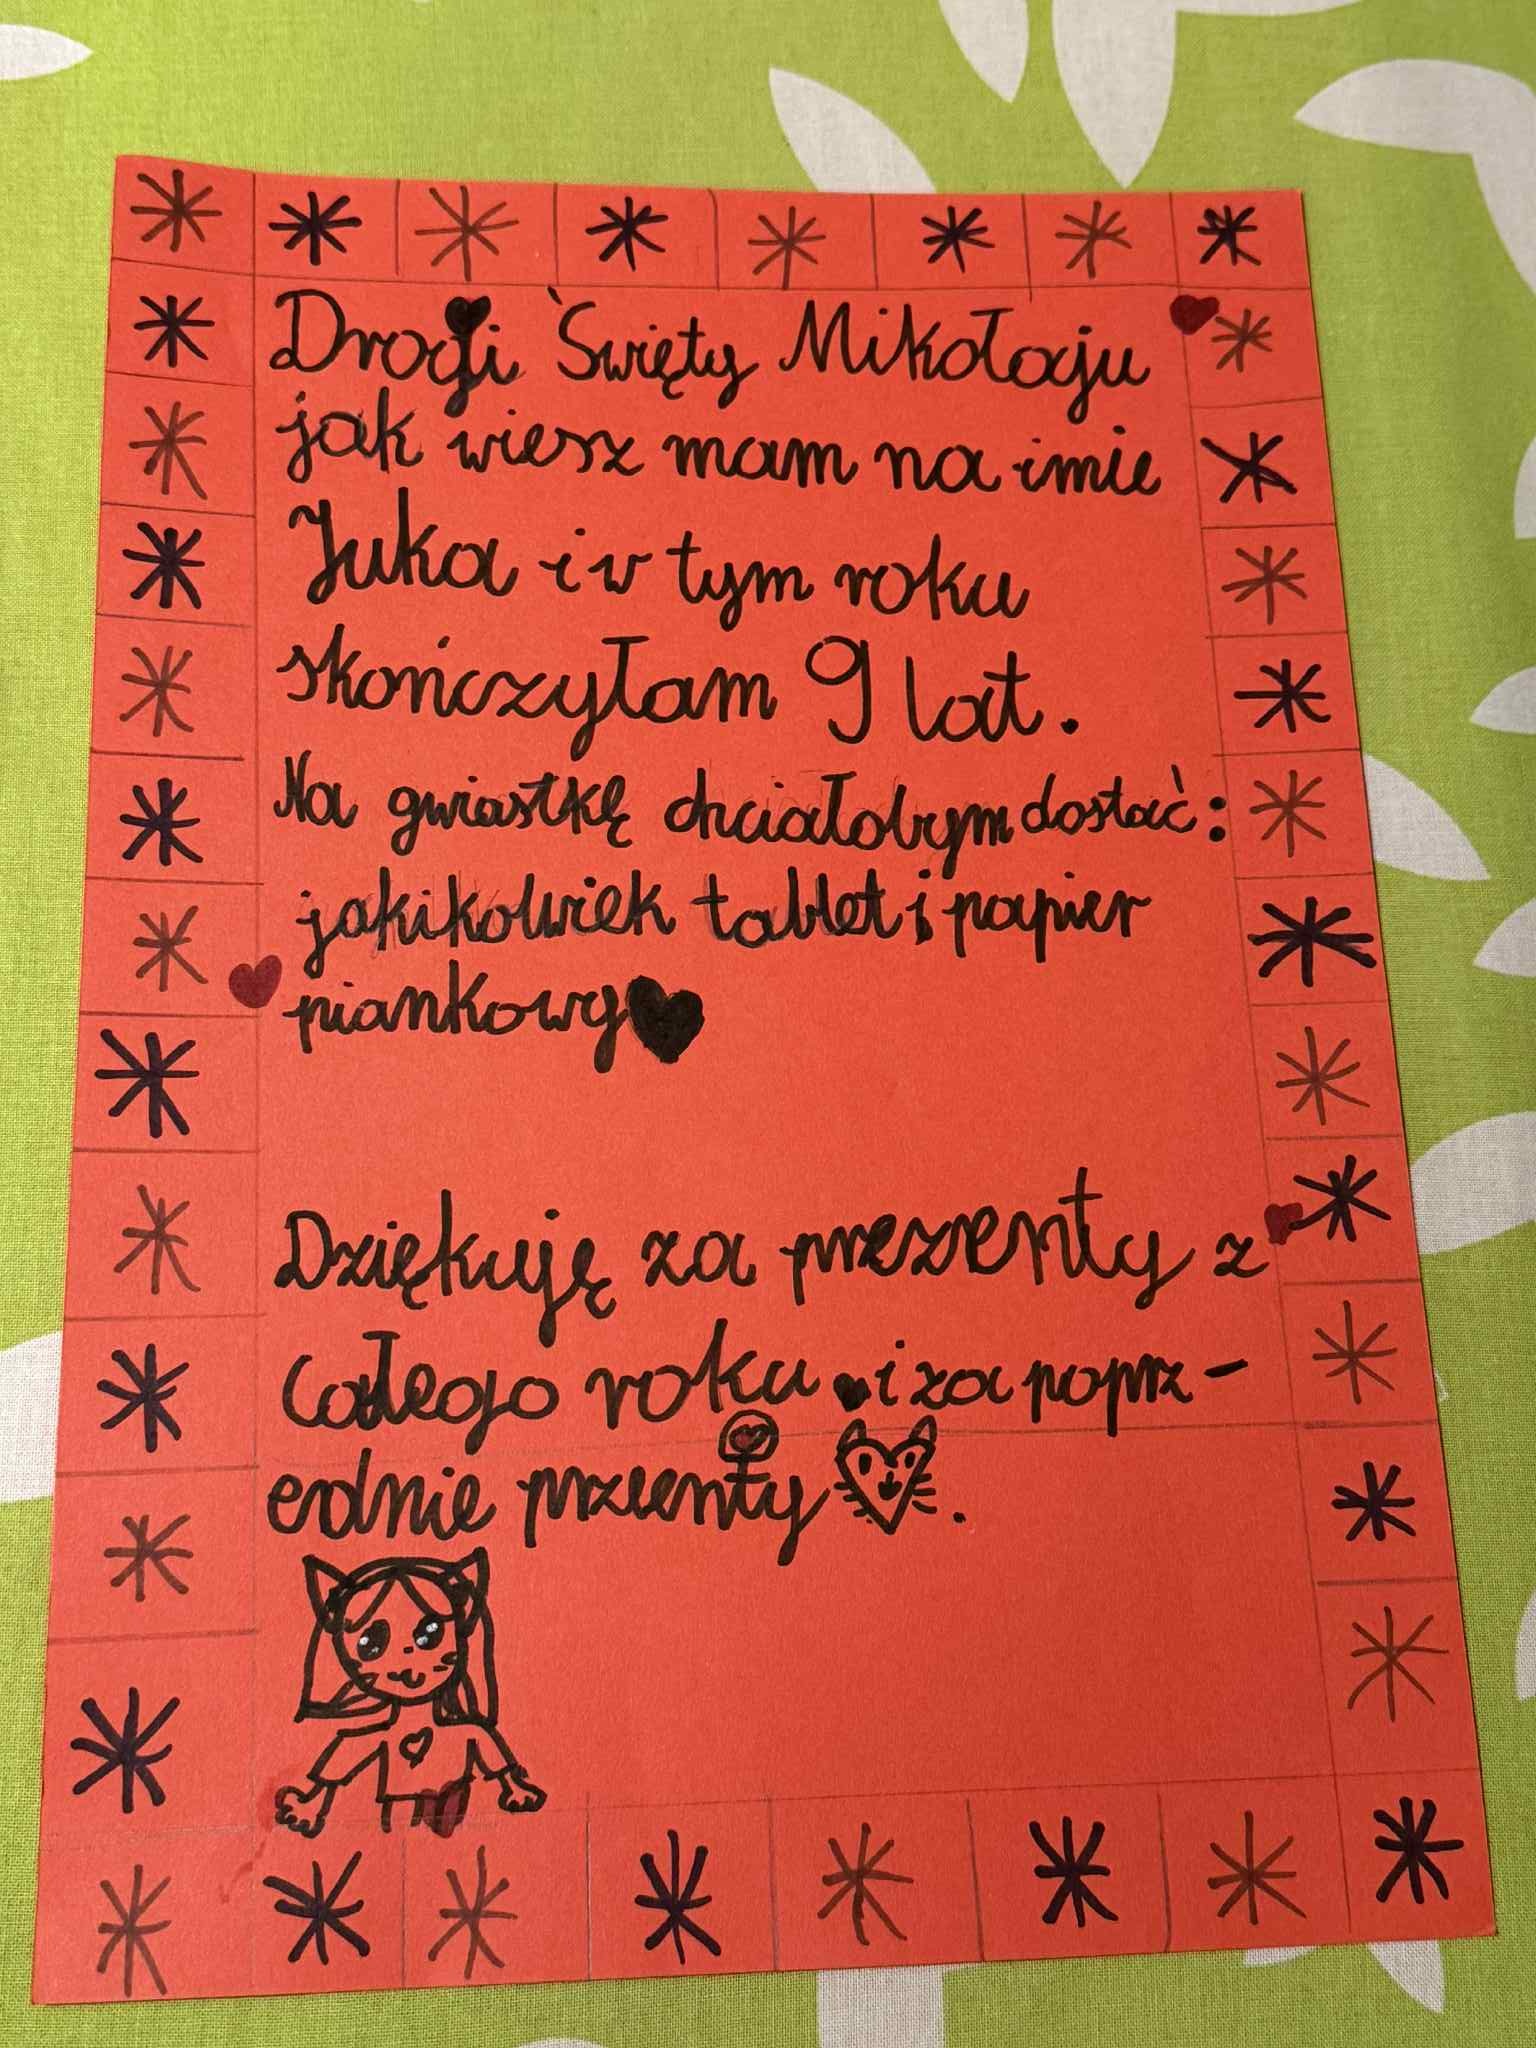 Drogi Święty Mikołaju
jak wiesz mam na imie
Juka i w tym roku
skończyłam 9 lat.
Na gwiastkę chciałobym dostać:
jakikolwiek tablet i papier
piankowy
Dziękuję za prezenty z
całego roku i za poprz-
ednie przenty.